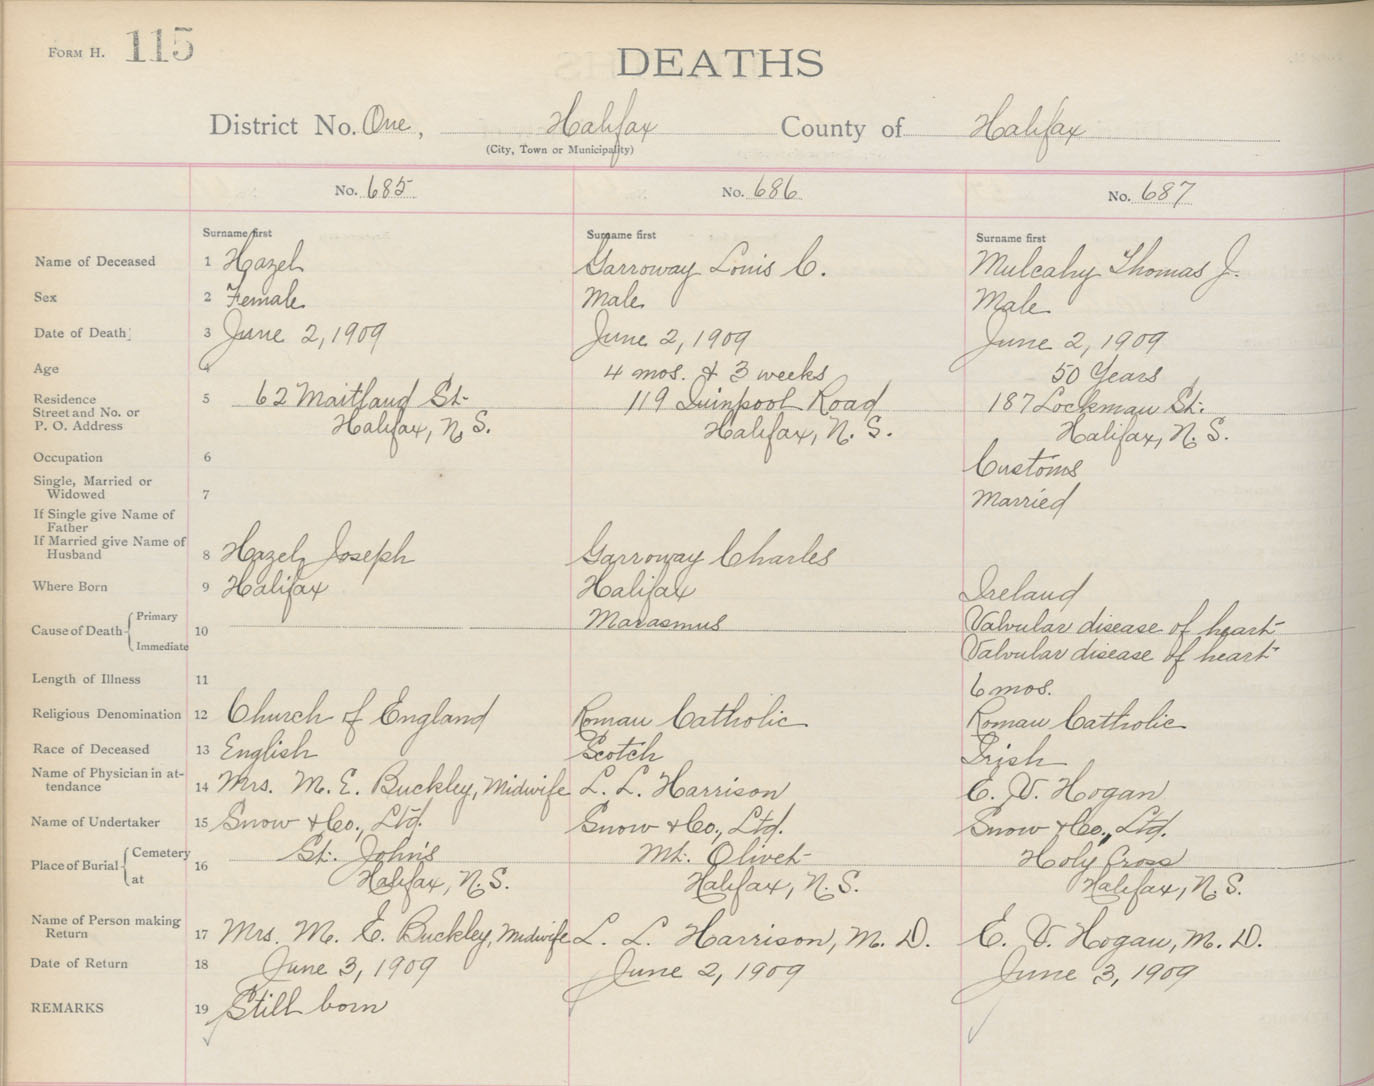 FORM H. 115
DEATHS
District No. One, Halifax County of Halifax
(City, Town or Municipality)
No. 685 No. 686 No. 687
Surname first Surname first Surname first
Name of Deceased 1 Hazel Garroway Louis C. Mulcahy Thomas J.
Sex 2 Female Male Male
Date of Death 3 June 2, 1909 June 2, 1909 June 2, 1909
Age 4 4 mos. & 3 weeks 50 Years
Residence 5 62 Maitland St. 119 Quinpool Road 187 Lockman St.
Street and No. or
P. O. Address Halifax, N.S. Halifax, N. S. Halifax, N. S.
Occupation 6 Customs
Single, Married or
Widowed 7 Married
If Single give Name of
Father
If Married give Name of
Husband 8 Hazel, Joseph Garroway Charles
Where Born 9 Halifax Halifax Ireland
Cause of Death 10 Primary Marasmus Valvular disease of heart
Immediate Valvular disease of heart
Length of Illness 11 6 mos.
Religious Denomination 12 Church of England Roman Catholic Roman Catholic
Race of Deceased 13 English Scotch Irish
Name of Physician in at-
tendance 14 Mrs. M. E. Buckley, Midwife L. L. Harrison E. V. Hogan
Name of Undertaker 15 Snow & Co., Ltd. Snow & Co., Ltd. Snow & Co., Ltd.
Place of Burial 16 Cemetery St. John's Mt. Olivet Holy Cross
at Halifax, N.S. Halifax, N.S. Halifax, N.S.
Name of Person making
Return 17 Mrs. M. E. Buckley, Midwife L. L. Harrison, M. D. E. V. Hogan, M. D.
Date of Return 18 June 3, 1909 June 2, 1909 June 3, 1909
REMARKS 19 Still born